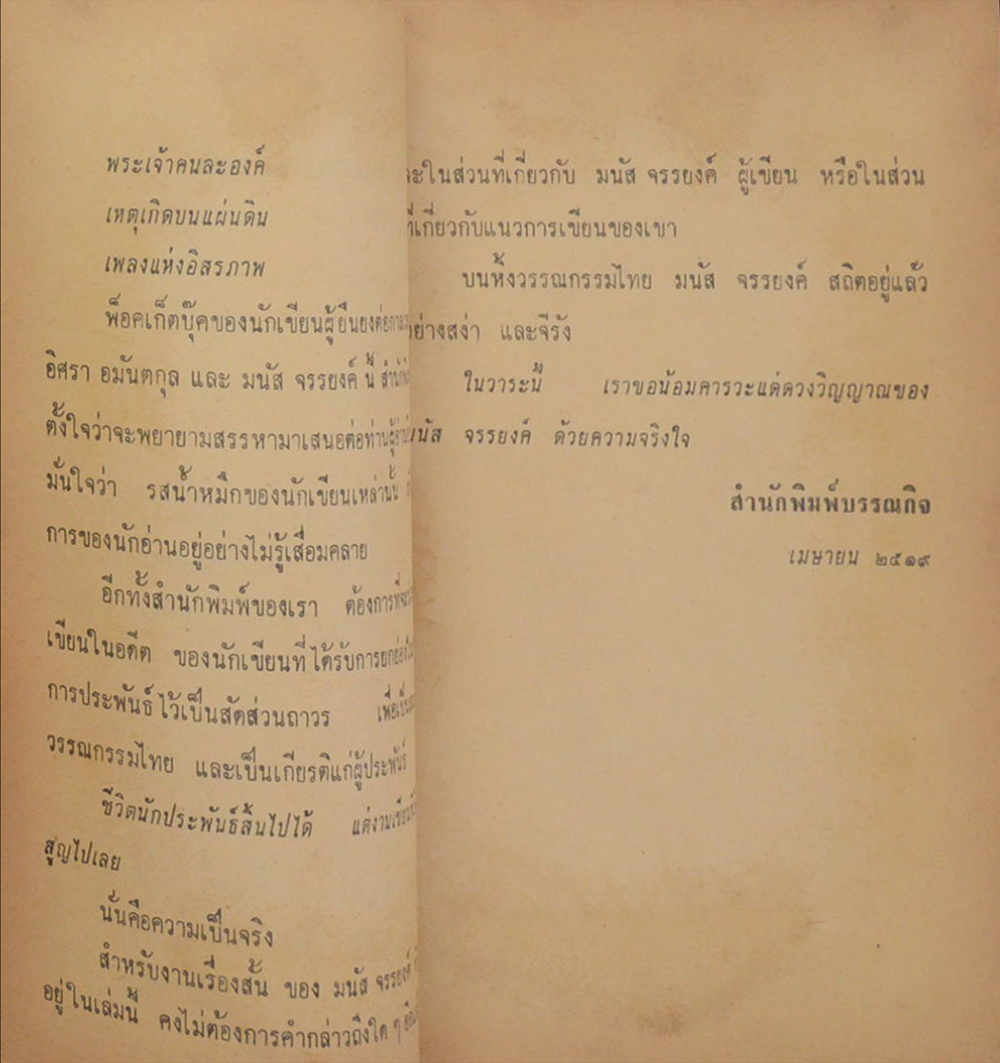 พระเจ้าคนละองค์
เหตุเกิดบนแผ่นดิน
เพลงแห่งอิสรภาพ
พ็อคเก็ตบุ๊คของนักเขียนผู้ยืนยงต่อกาล
อิศรา อมันตกุล และ มนัส จรรยงค์ นี้
ตั้งใจว่าจะพยายามสรรหามาเสนอต่อท่าน
มั่นใจว่า รสน้ำหมึกของนักเขียนเหล่านั้น
การของนักอ่านอยู่อย่างไม่รู้เสื่อมคลาย
อีกทั้งสำนักพิมพ์ของเรา ต้องการที่จะ
เขียนในอดีต ของนักเขียนที่ได้รับการยกย่อง
การประพันธ์ไว้เป็นสัดส่วนถาวร
วรรณกรรมไทย และเป็นเกียรติแก่ผู้ประพันธ์
ชีวิตนักประพันธ์สิ้นไปได้ แต่งานเขียน
สูญไปเลย
นั่นคือความเป็นจริง
สำหรับงานเรื่องสั้น ของ มนัส จรรยงค์
อยู่ในเล่มนี้ คงไม่ต้องการคำกล่าวถึงใด ๆ
ในส่วนที่เกี่ยวกับ มนัส จรรยงค์ ผู้เขียน หรือในส่วน
ที่เกี่ยวกับแนวการเขียนของเขา
บนหิ้งวรรณกรรมไทย มนัส จรรยงค์ สถิตอยู่แล้ว
อย่างสง่า และจีรัง
ในวาระนี้ เราขอน้อมคารวะแด่ดวงวิญญาณของ
มนัส จรรยงค์ ด้วยความจริงใจ
สำนักพิมพ์บรรณกิจ
เมษายน ๒๕๑๙